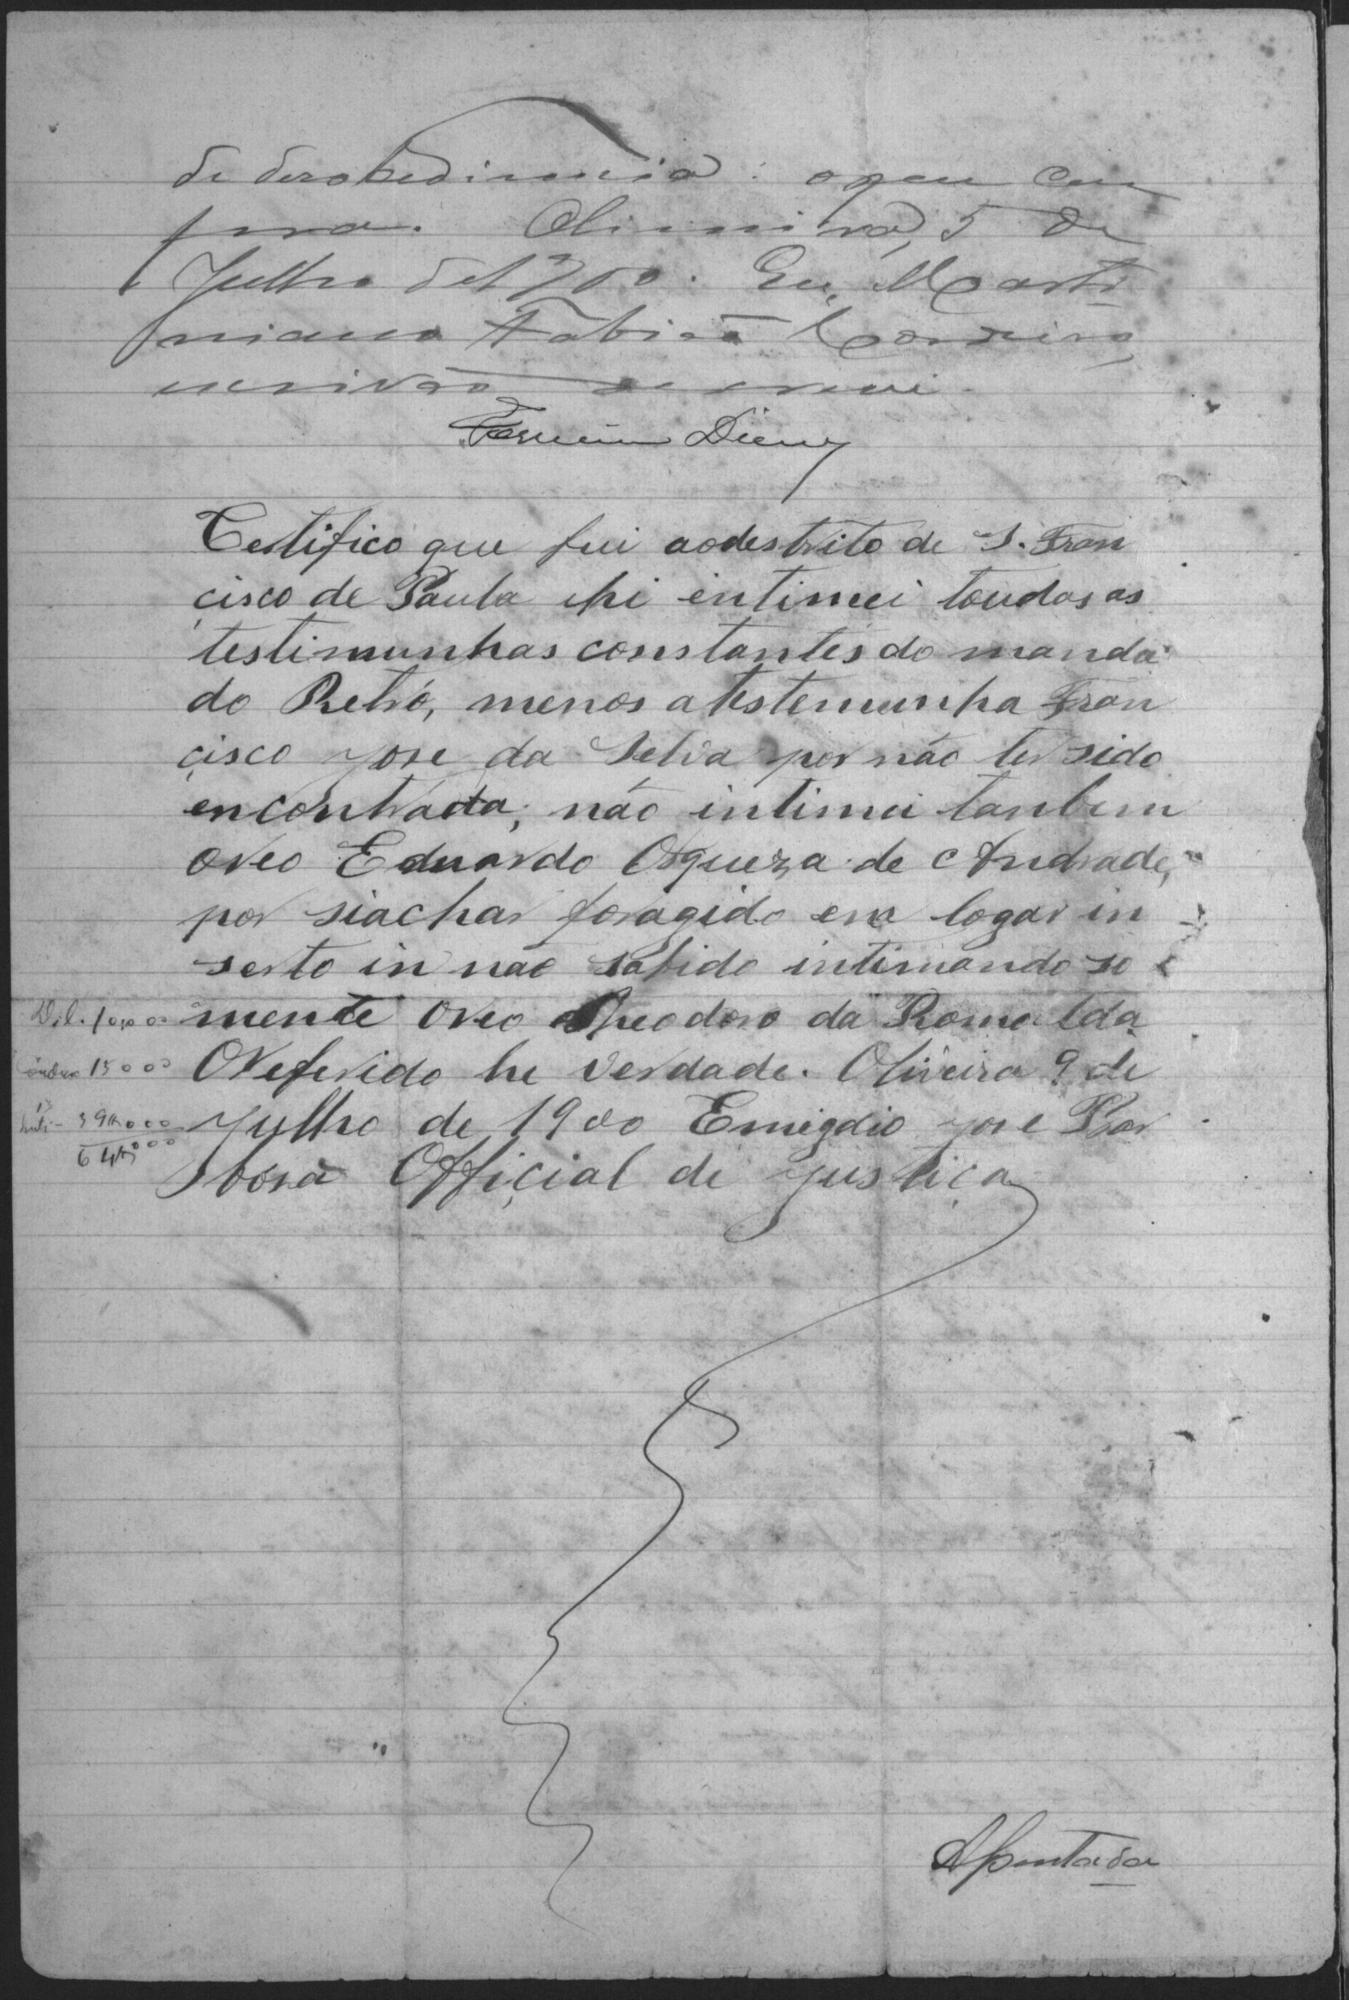 de desobediencia: o que cum
pra. Oliveira, 5 de
Julho de 1900. Eu, Marti
niano Fabião Cordeiro,
escrivão o escrevi.
Certifico que fui aodestrito de S. Fran
cisco de Paula ehi entimei toudas as
testimunhas constantes do manda
do Retró, menos a testemunha Fran
cisco jose da Selva por não ter sido
encontrada; não intimei tanbem
oreo Eduardo de Andrade,
por siachar foragido em logar in
serto in não sabido intimando so
mente oreo Theodoro da Romalda
Dil. 10,000
OReferido he verdade. Oliveira 9 de
15000
julho de 1900 Emigdio jose Bar
39$000
64$000
bosa Official de justiça
Apontador